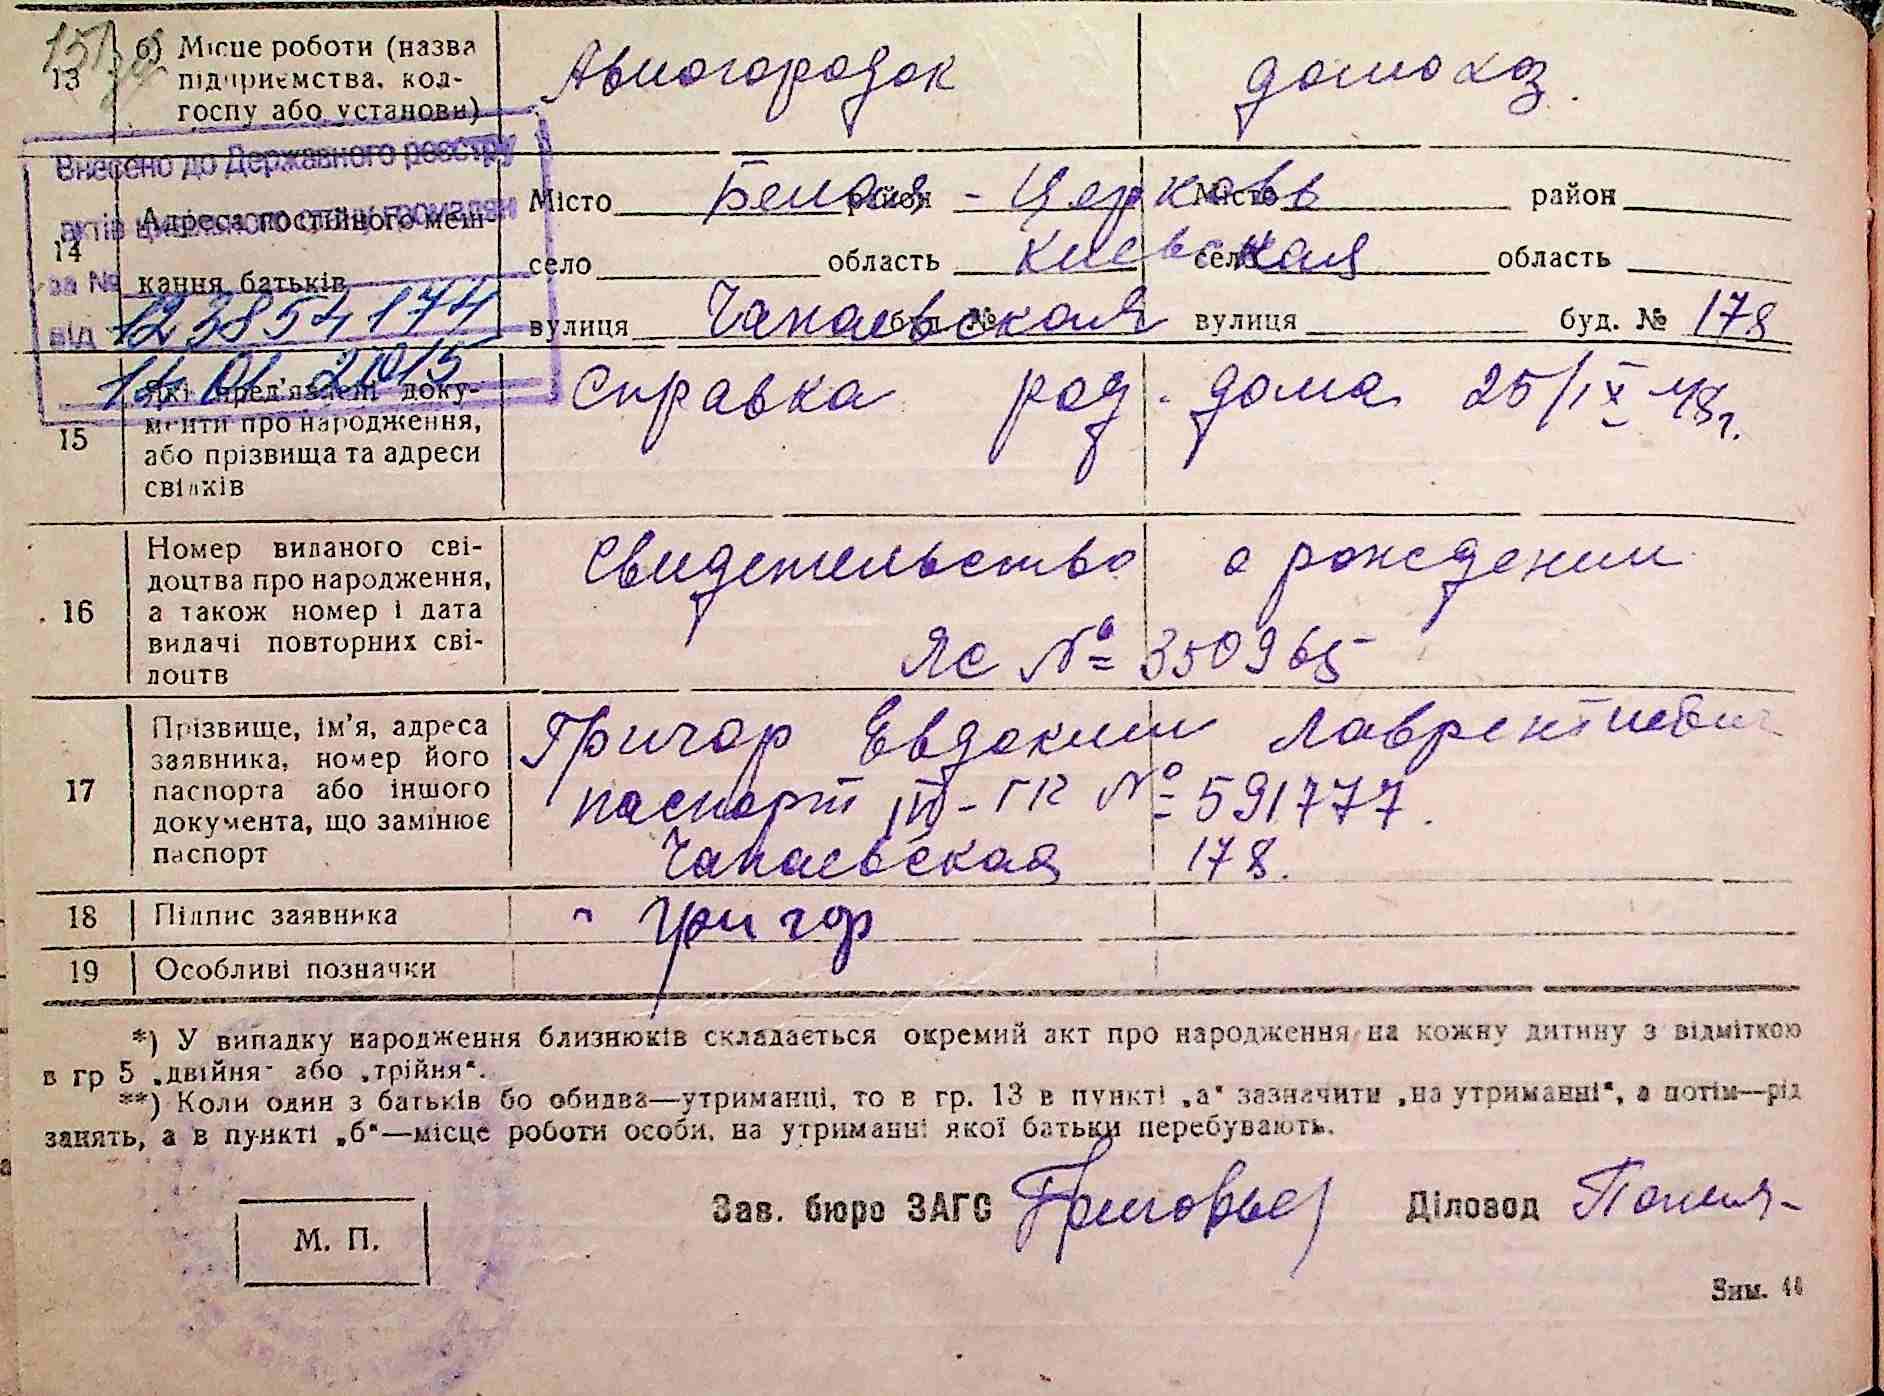 13 б) Місце роботи (назва
підприємства, кол-
госпу або установи)
Авиогородок домохоз.
Внесено до Державного реєстру
актів цивільного стану громадян
за № 123854174
від 14 01 2015
14 Адреса постійного меш-
кання батьків
Місто Белая - Церковь район Місто район
село область Киевская село область
вулиця Чапаевская буд. № вулиця буд. № 178
15 Які пред'явлені доку-
менти про народження,
або прізвища та адреси
свідків
Справка род. дома 25/IX 48г.
16 Номер виданого сві-
доцтва про народження,
а також номер і дата
видачі повторних сві-
доцтв
Свидетельство о рождении
ЯС № 350965
17 Прізвище, ім'я, адреса
заявника, номер його
паспорта або іншого
документа, що замінює
паспорт
Григор Евдоким Лаврентиевич
паспорт № 591777.
Чапаевская 178.
18 Підпис заявника Григор
19 Особливі позначки
*) У випадку народження близнюків складається окремий акт про народження на кожну дитину з відміткою
в гр 5 „двійня" або „трійня".
**) Коли один з батьків бо обидва—утриманці, то в гр. 13 в пункті „а" зазначити „на утриманні", а потім—рід
занять, а в пункті „б"—місце роботи особи, на утриманні якої батьки перебувають.
Зав. бюро ЗАГС Діловод
М. П.
Зим. 44